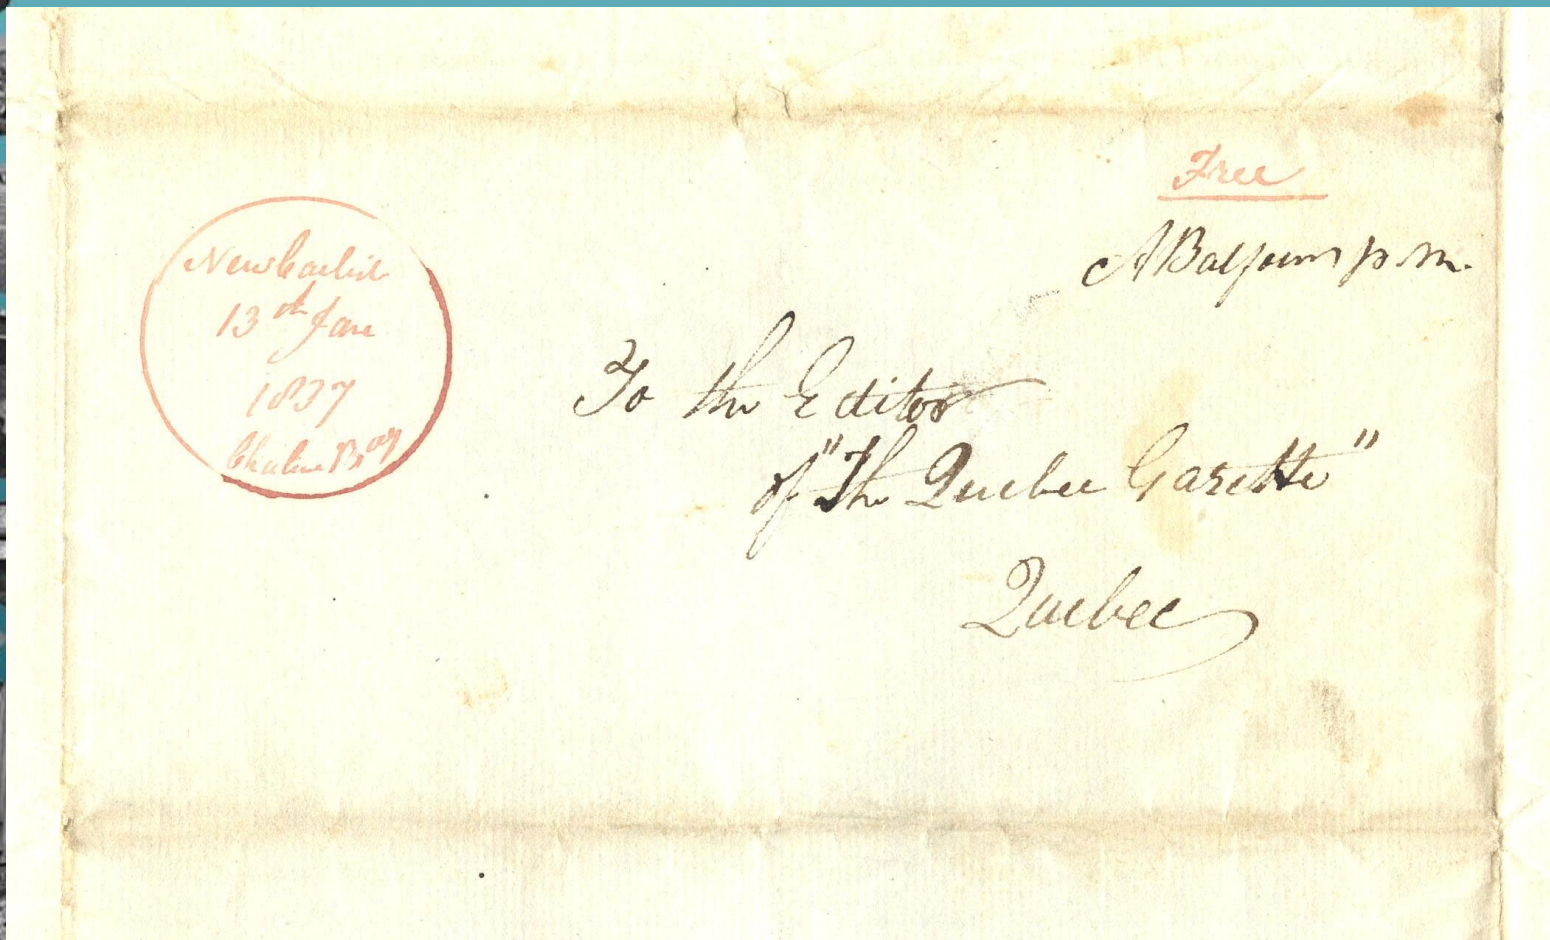 Free
A Balfour p.m.
New Carlisle
13th Jan
1837
Chaleur Bay
To the Editor
of "The Quebec Gazette"
Quebec